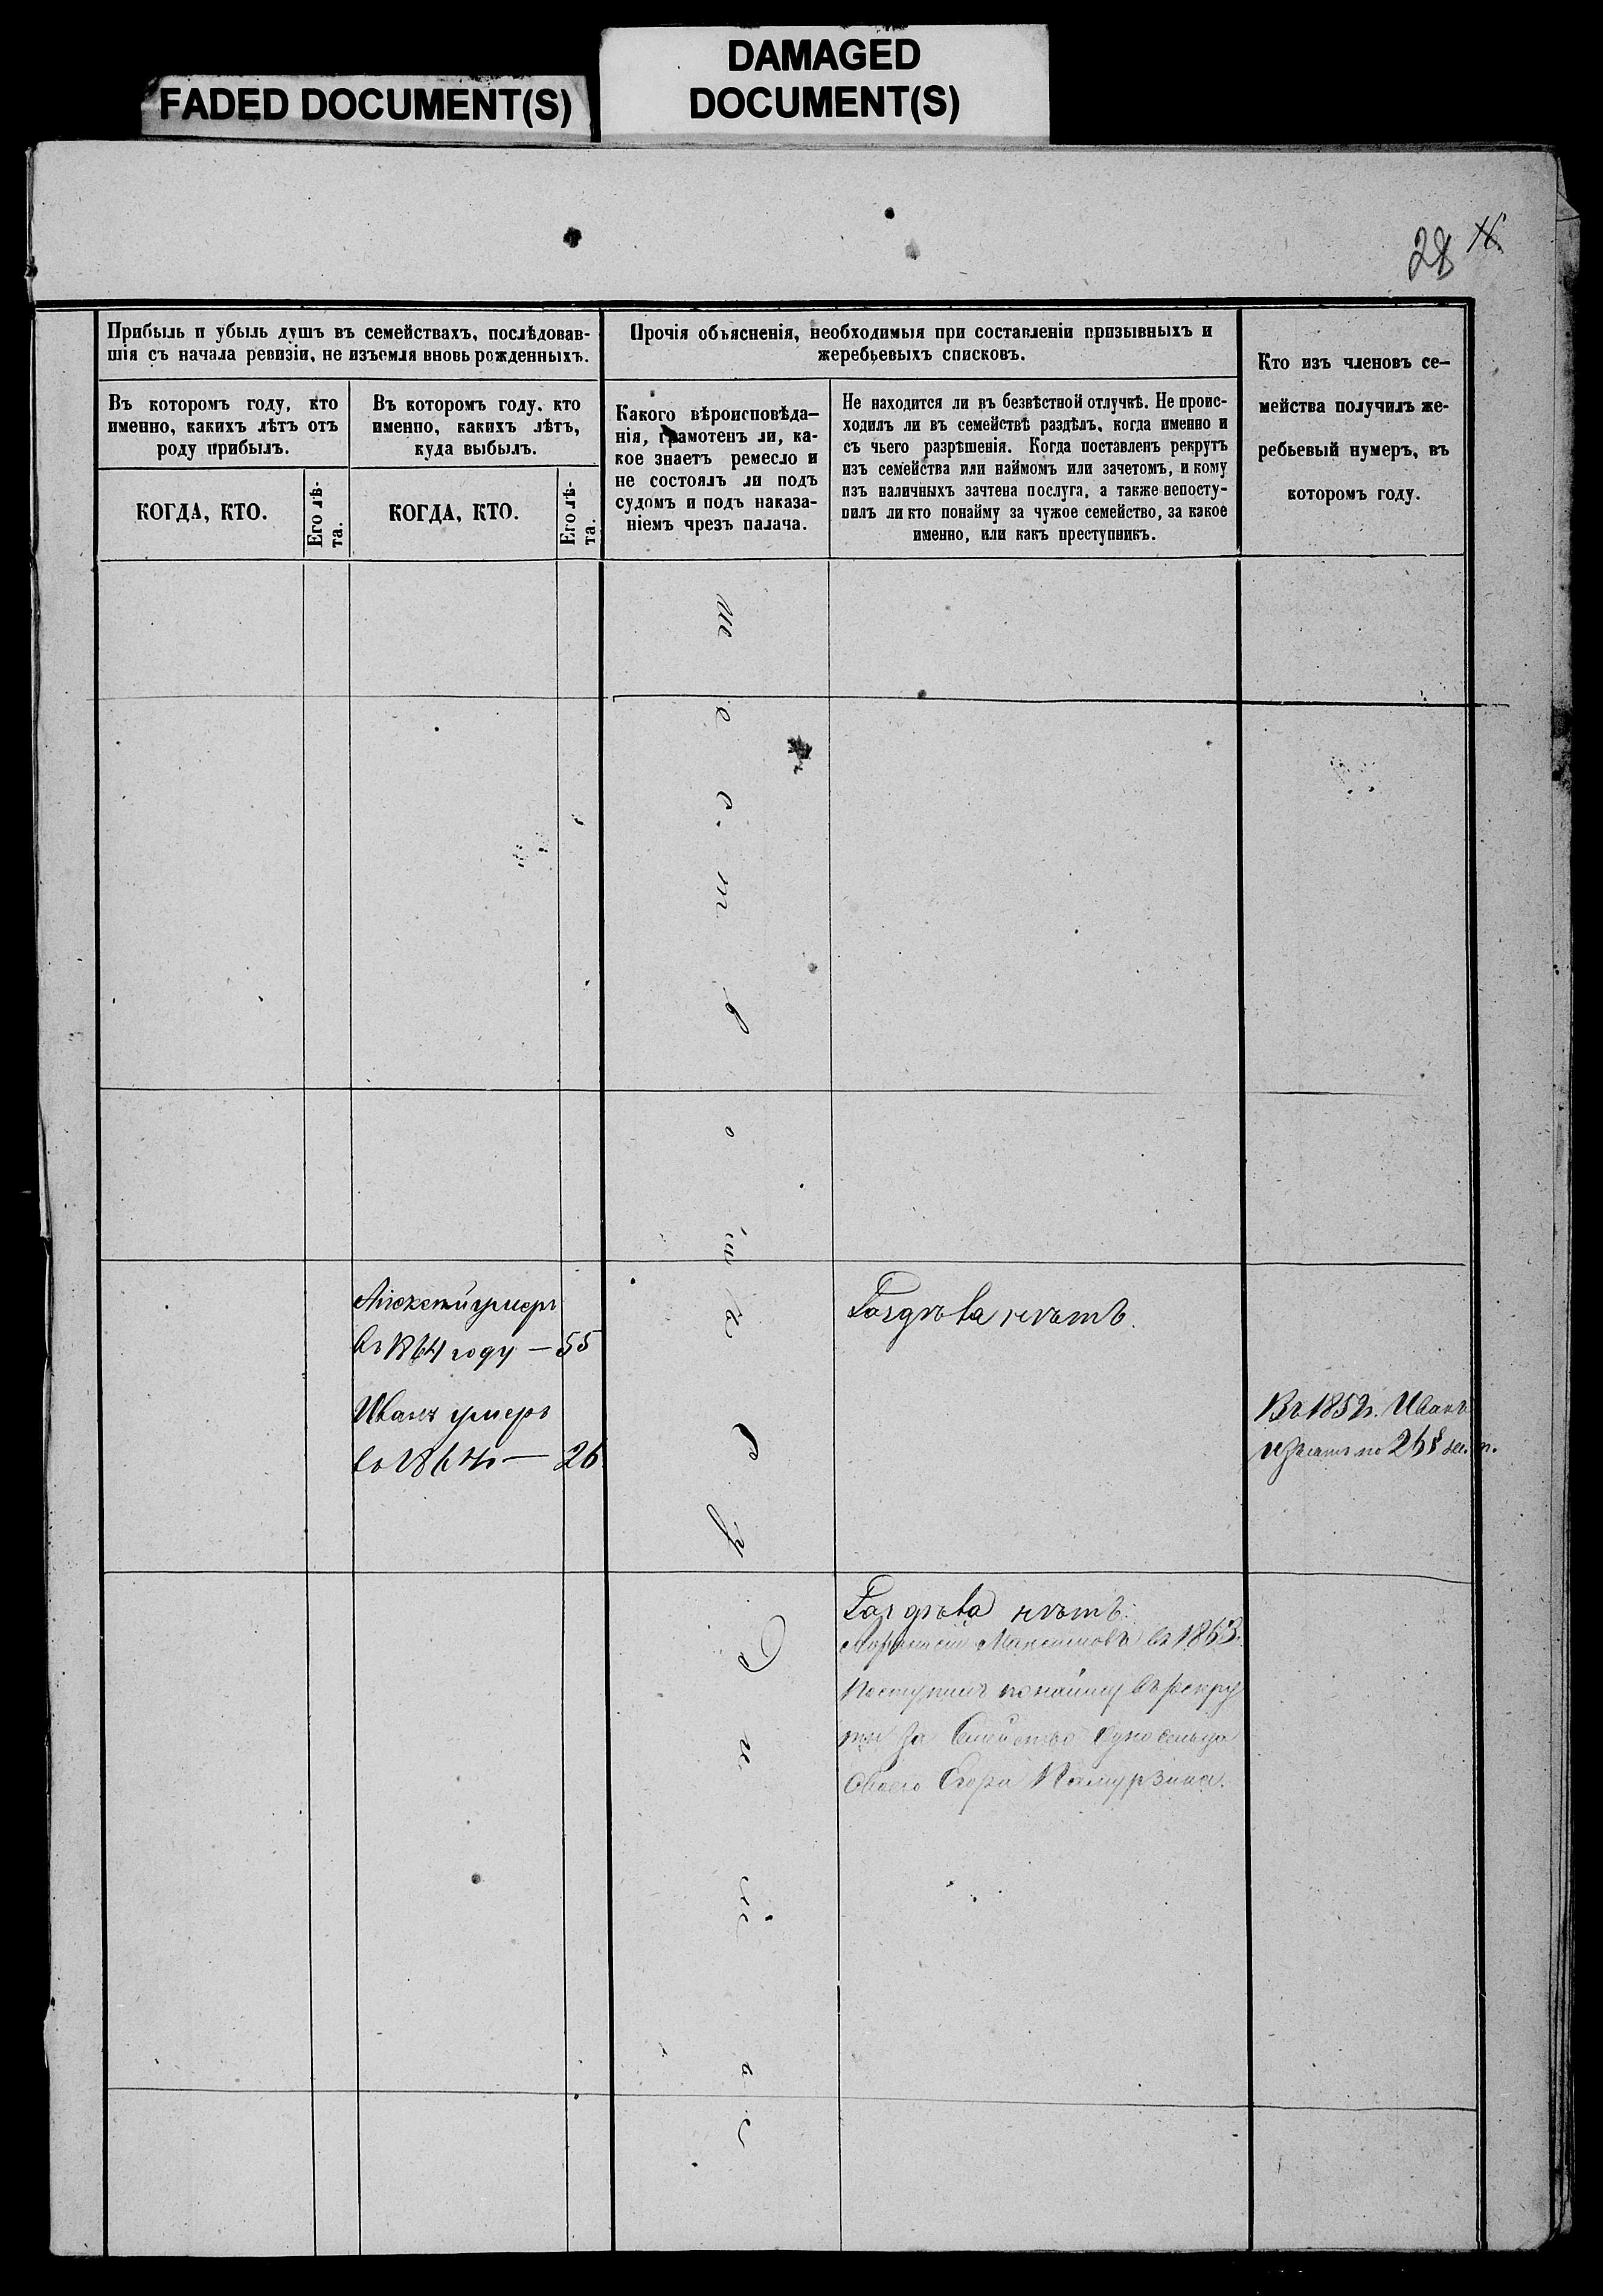 FADED DOCUMENT(S)
DAMAGED
DOCUMENT(S)
28
Прибыль и убыль душъ въ семействахъ, послѣдовав-
шія съ начала ревизіи, не изъемля вновь рожденныхъ.
Въ которомъ году, кто
именно, какихъ лѣтъ отъ
роду прибылъ.
Въ которомъ году, кто
именно, какихъ лѣтъ,
куда выбылъ.
КОГДА, КТО.
Его лѣ-
та.
КОГДА, КТО.
Его лѣ-
та.
Прочія объясненія, необходимыя при составленіи призывныхъ и
жеребьевыхъ списковъ.
Какого вѣроисповѣда-
нія, грамотенъ ли, ка-
кое знаетъ ремесло и
не состоялъ ли подъ
судомъ и подъ наказа-
ніемъ чрезъ палача.
Не находится ли въ безвѣстной отлучкѣ. Не проис-
ходилъ ли въ семействѣ раздѣлъ, когда именно и
съ чьего разрѣшенія. Когда поставленъ рекрутъ
изъ семейства или наймомъ или зачетомъ, и кому
изъ наличныхъ зачтена послуга, а также непосту-
пилъ ли кто понайму за чужое семейство, за какое
именно, или какъ преступникъ.
Кто изъ членовъ се-
мейства получилъ же-
ребьевый нумеръ, въ
которомъ году.
Алексей умеръ
въ 1864 году — 55
Иванъ умеръ
въ 1864 — 26
Раздѣла нѣтъ.
Въ 1852 г. Иванъ
Раздѣла нѣтъ.
Максимовъ въ 1863
Поступилъ понайму въ рекру
ты за Семейство Односельца
Своего Егора